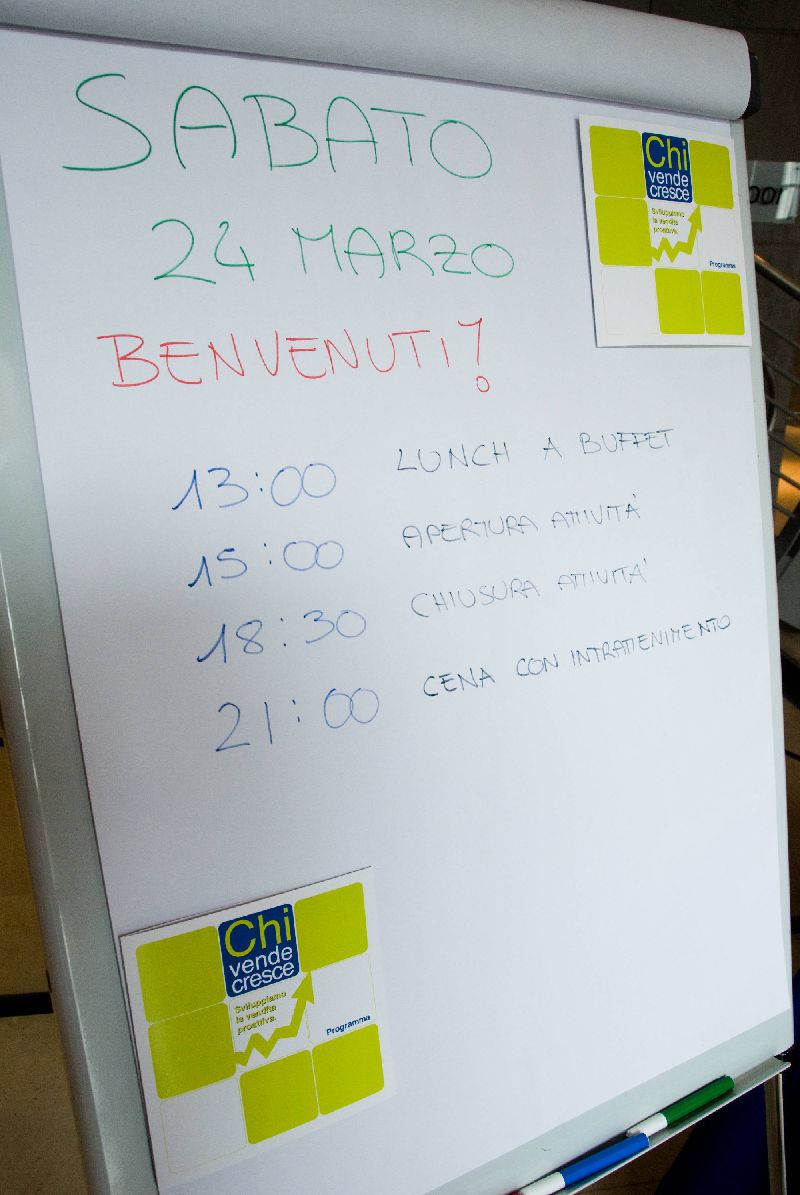 SABATO
24 MARZO
BENVENUTI!
13:00 LUNCH A BUFFET
15:00 APERTURA ATTIVITÀ
18:30 CHIUSURA ATTIVITA'
21:00 CENA CON INTRATTENIMENTO
Chi
vende
cresce
Sviluppiamo
la vendita
proattiva.
Programma
Chi
vende
cresce
Sviluppiamo
la vendita
proattiva.
Programma